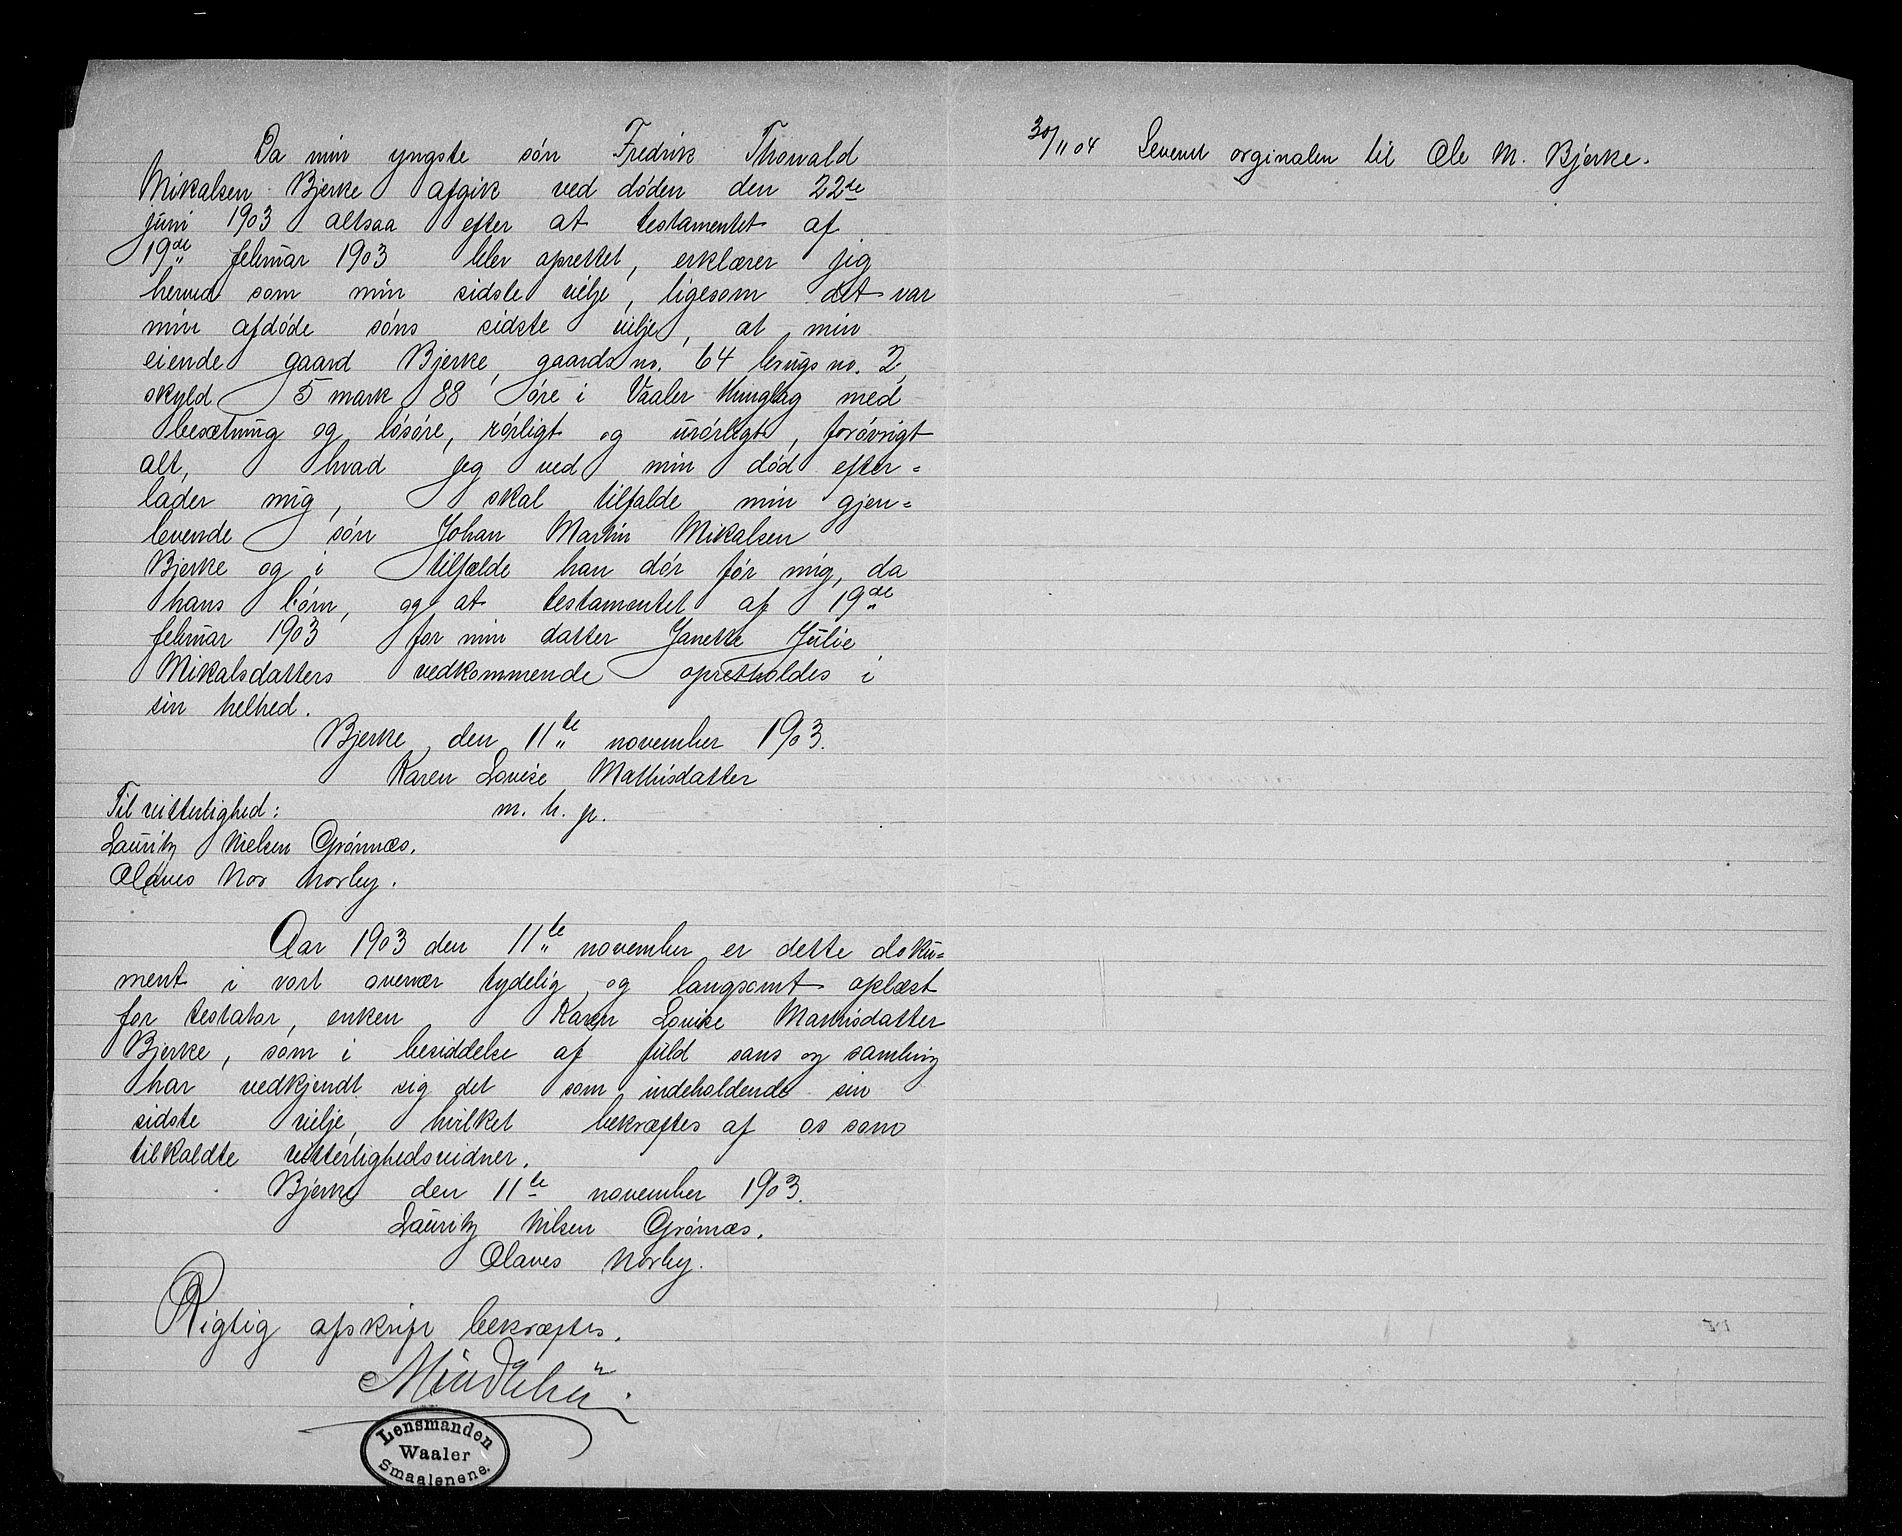 Da min yngste søn Fredrik Thorvald
Mikalsen Bjerke afgik ved døden den 22de
juni 1903 altsaa efter at testamentet af
19de februar 1903 blev oprettet, erklærer jeg
herved som min sidste vilje, ligesom det var
min afdøde søns sidste vilje, at min
eiende gaard Bjerke, gaards no. 64 brugs no. 2,
skyld 5 mark 88 øre i Vaaler thinglag med
besætning og løsøre, rørligt og urørligt, forøvrigt
alt, hvad jeg ved min død efter=
lader mig, skal tilfalde min gjen=
levende søn Johan Martin Mikalsen
Bjerke og i tilfælde han dør før mig, da
hans børn, og at testamentet af 19de
februar 1903 for min datter Janette Julie
Mikalsdatters vedkommende opretholdes i
sin helhed.
Bjerke den 11te november 1903.
Karen Lovise Mathisdatter
m. h. p.
Til vitterlighed:
Lauritz Nielsen Grønnæs.
Olaves Norby.
Aar 1903 den 11te november er dette doku=
ment i vort overvær tydelig og langsomt oplæst
for testator, enken Karen Lovise Mathisdatter
Bjerke, som i besiddelse af fuld sans og samling
har vedkjendt sig det som indeholdende sin
sidste vilje, hvilket bekræftes af os som
tilkaldte vitterlighedsvidner.
Bjerke den 11te november 1903.
Lauritz Nilsen Grønnæs.
Olaves Norby.
Rigtig afskrift bekræftes.
Lensmanden
Waaler
Smaalenene.
30/11 04 Leveret orginalen til Ole M. Bjerke.